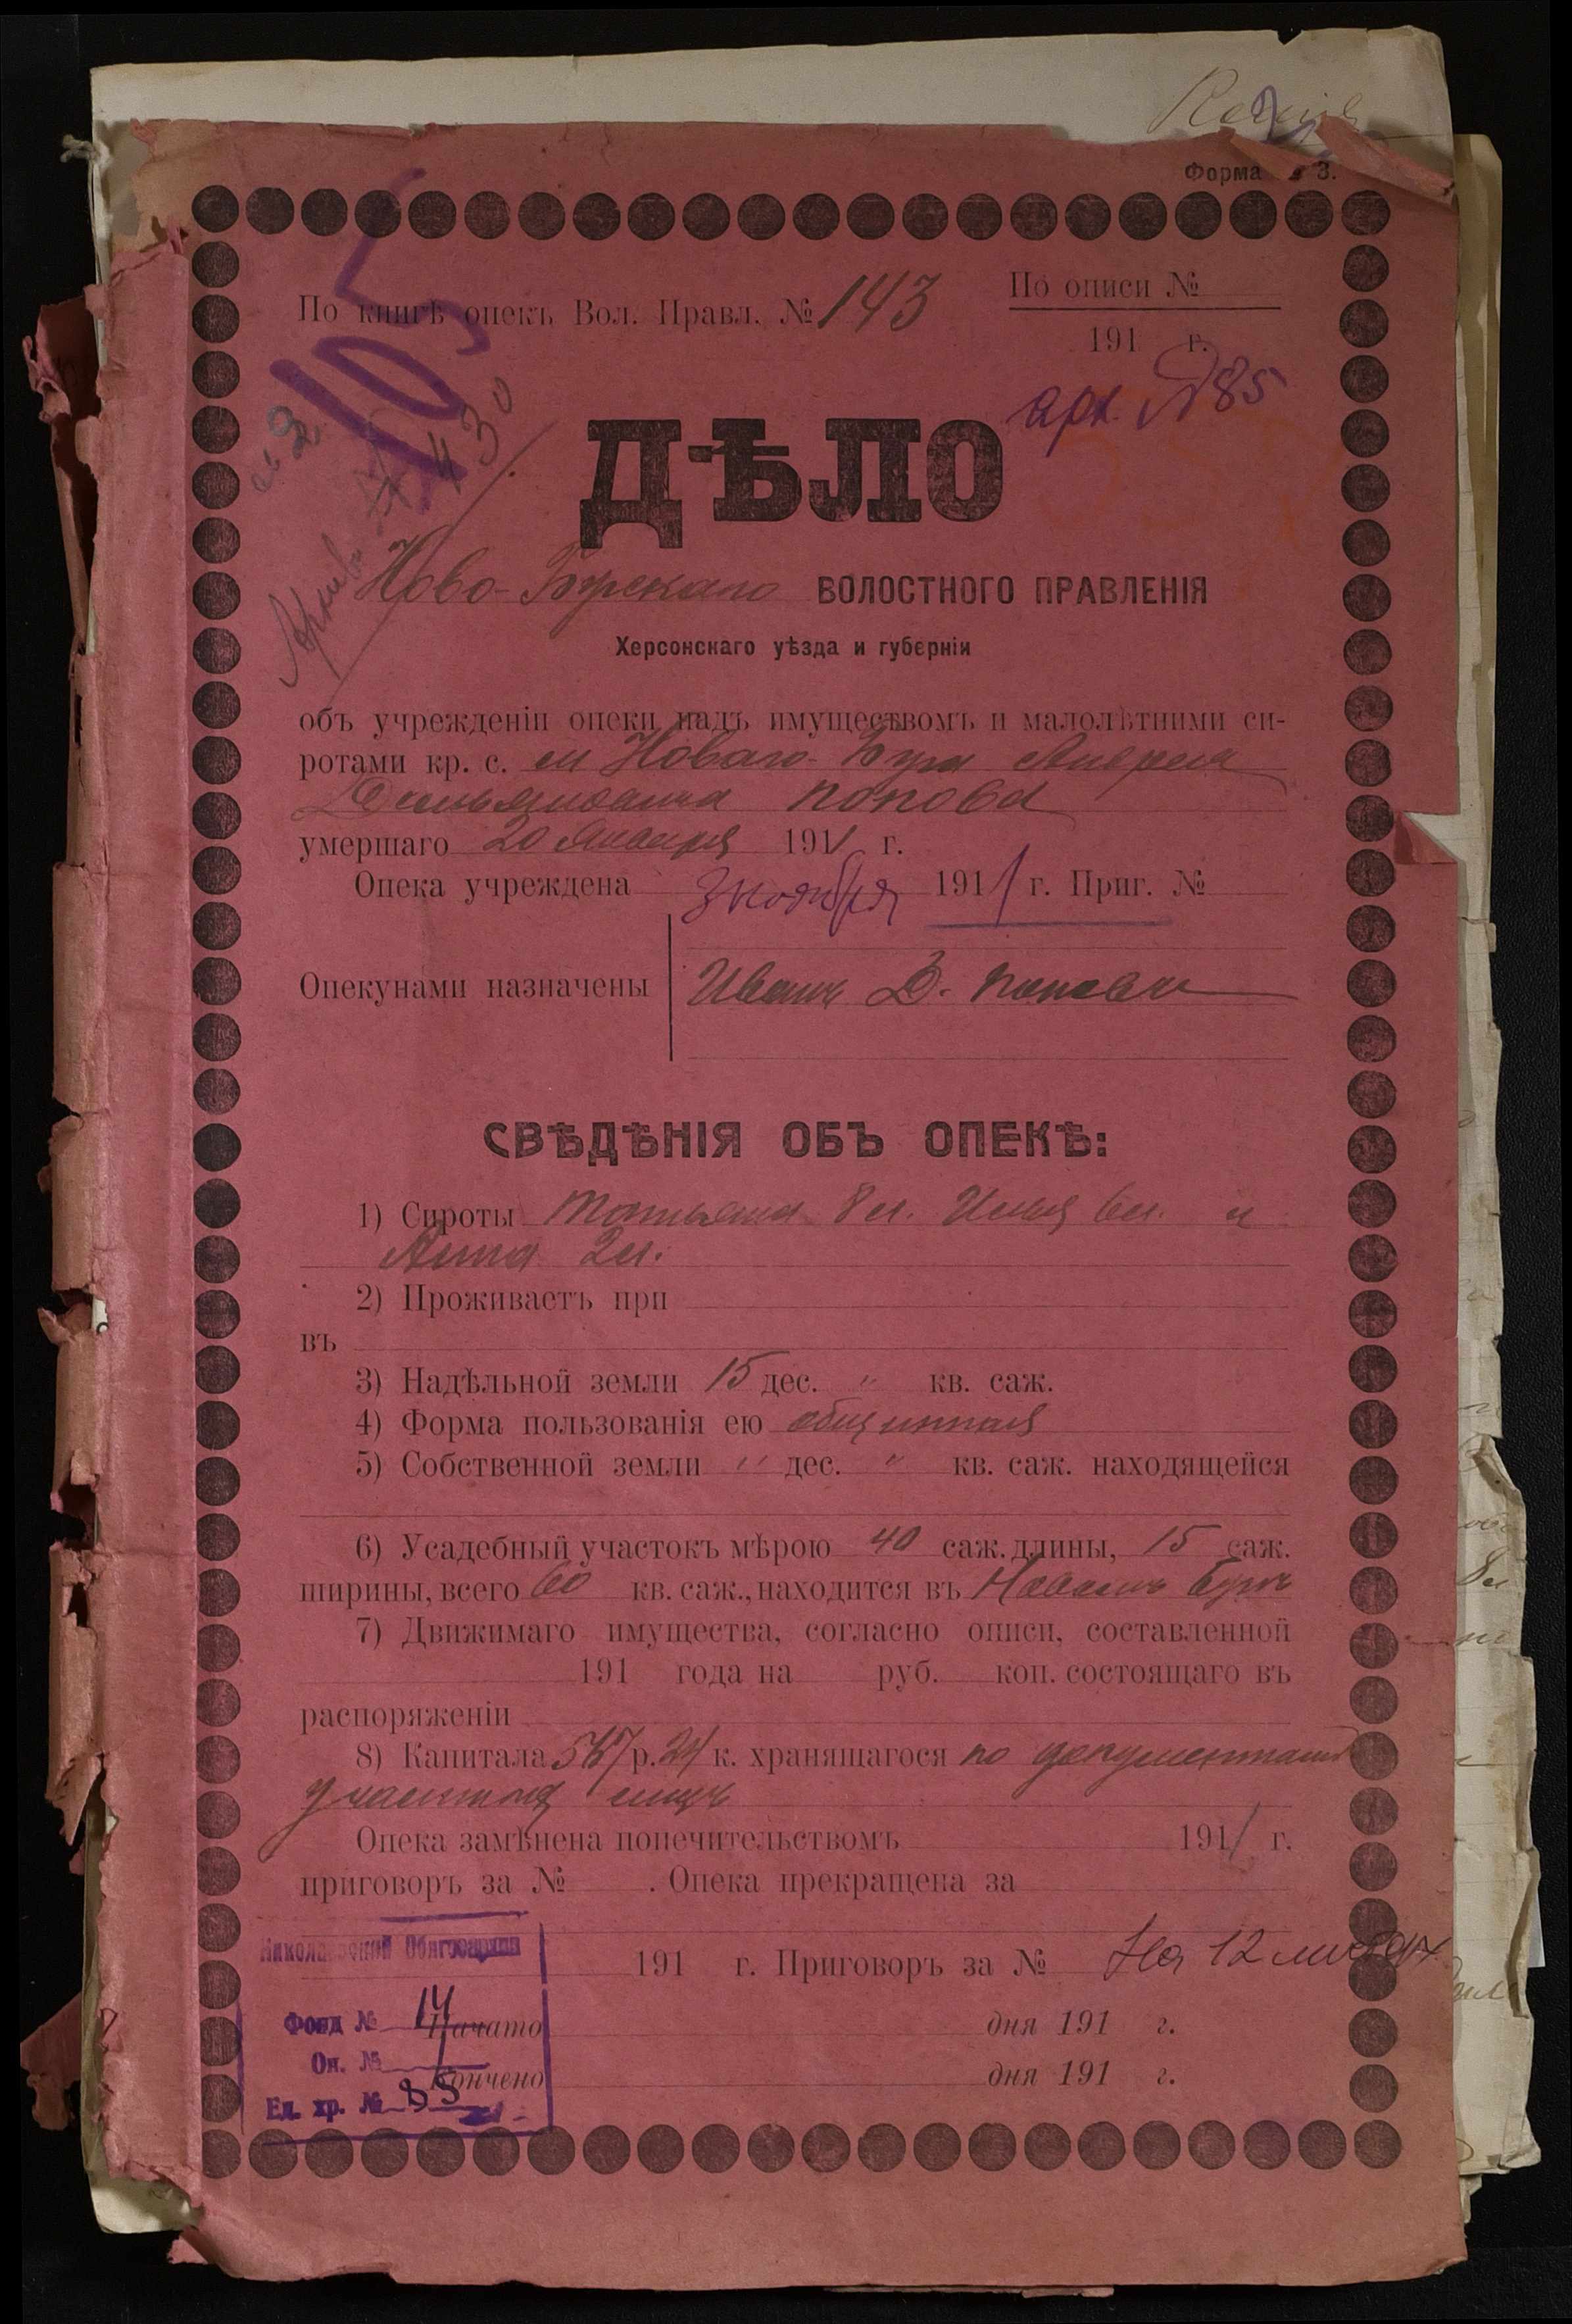 Форма № 3.
По книгѣ опекъ Вол. Правл. № 143
По описи №
191 г.
арх. № 85
105
Архив № 430
ДѢЛО
Ново-Бугскаго ВОЛОСТНОГО ПРАВЛЕНІЯ
Херсонскаго уѣзда и губерніи
объ учрежденіи опеки надъ имуществомъ и малолѣтними си-
ротами кр. с. м Новаго-Буга Андрея
Демьяновича Попова
умершаго 20 Января 1911 г.
Опека учреждена 3 ноября 1911 г. Приг. №
Опекунами назначены
Иванъ Д. Поповъ
СВѢДѢНІЯ ОБЪ ОПЕКѢ:
1) Сироты Татьяна 8 л. Илья 6 л. и
Анна 2 л.
2) Проживаетъ при
въ
3) Надѣльной земли 15 дес. " кв. саж.
4) Форма пользованія ею общинная
5) Собственной земли " дес. " кв. саж. находящейся
6) Усадебный участокъ мѣрою 40 саж. длины, 15 саж.
ширины, всего 60 кв. саж., находится въ Новомъ Бугѣ
7) Движимаго имущества, согласно описи, составленной
191 года на руб. коп. состоящаго въ
распоряженіи
8) Капитала р. 24 к. хранящагося по документамъ
у частныхъ лицъ
Опека замѣнена попечительствомъ 1911 г.
приговоръ за № . Опека прекращена за
191 г. Приговоръ за №
На 12 листах
Николаевский Облгосархив
Фонд № 14
Оп. №
Ед. хр. № 85
Начато дня 191 г.
Кончено дня 191 г.